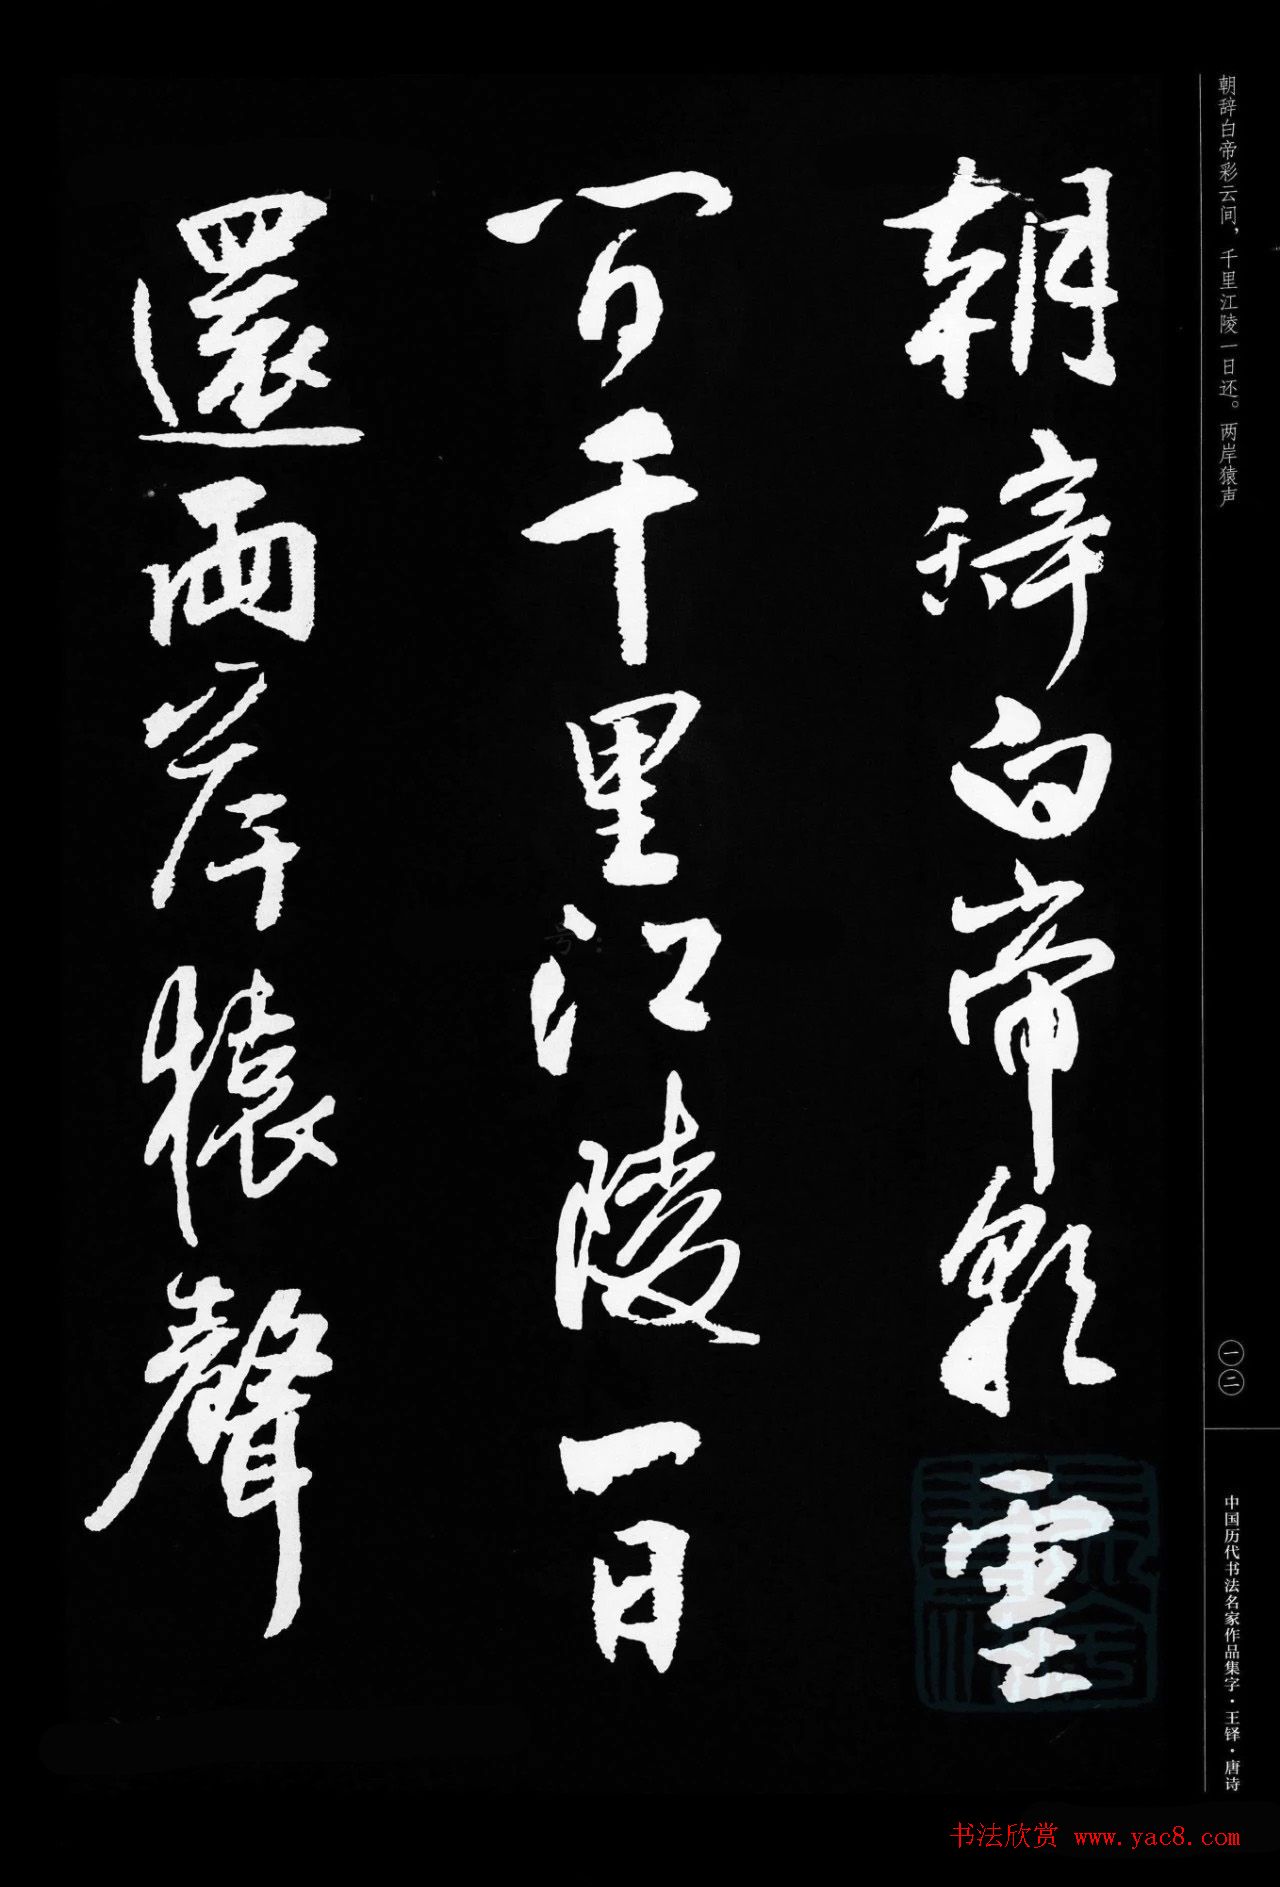 朝辞白帝彩云间，千里江陵一日还。两岸猿声
朝辭白帝彩雲
間千里江陵一日
還兩岸猿聲
一二
中国历代书法名家作品集字·王铎·唐诗
书法欣赏 www.yac8.com